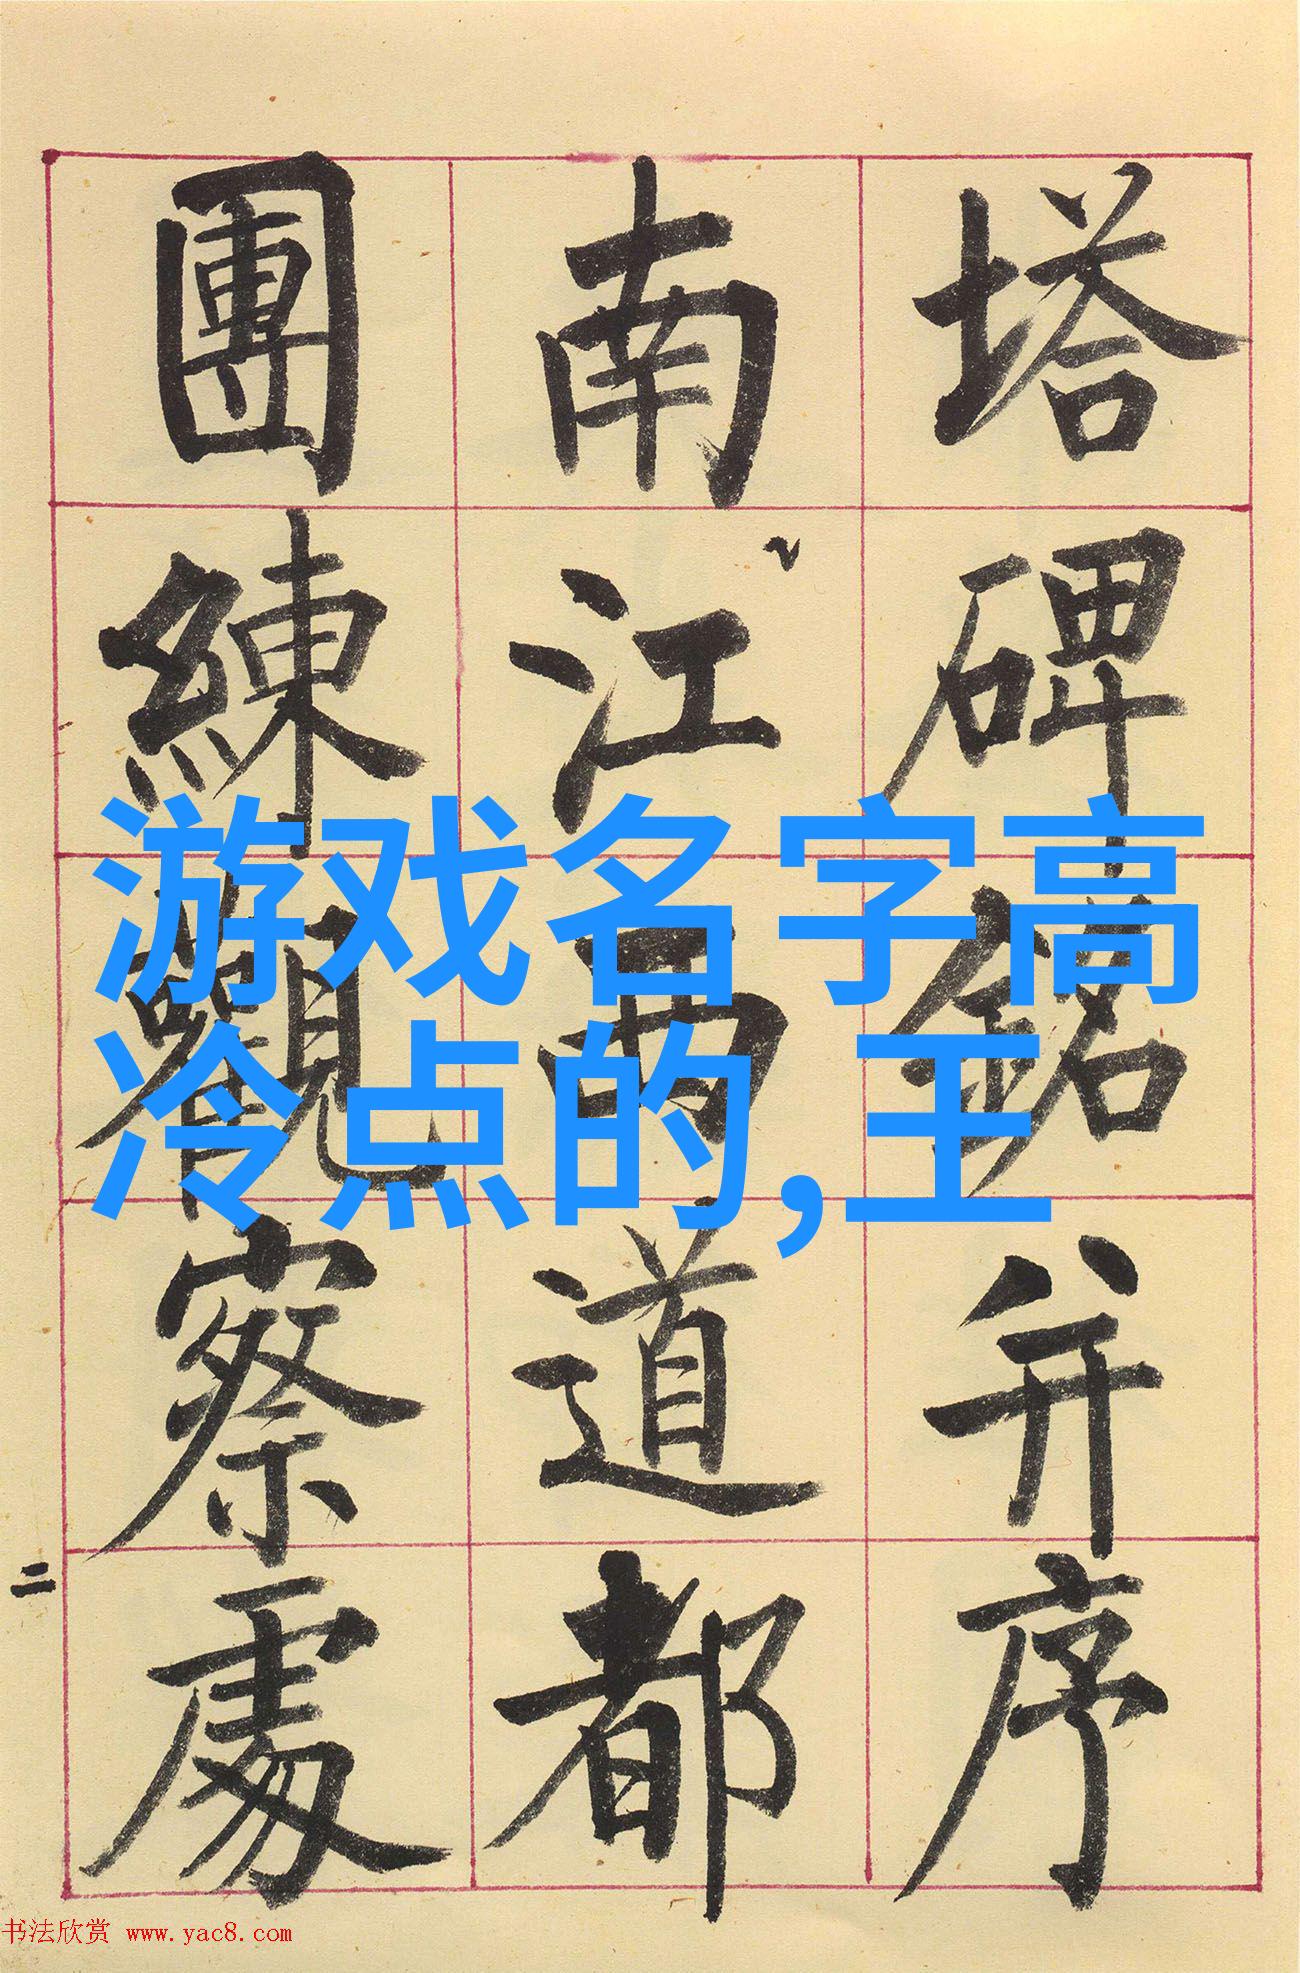 塔碑銘并序
南江西道都
團練觀察處
二
游戏名字高
冷点的,王
书法欣赏 www.yac8.com